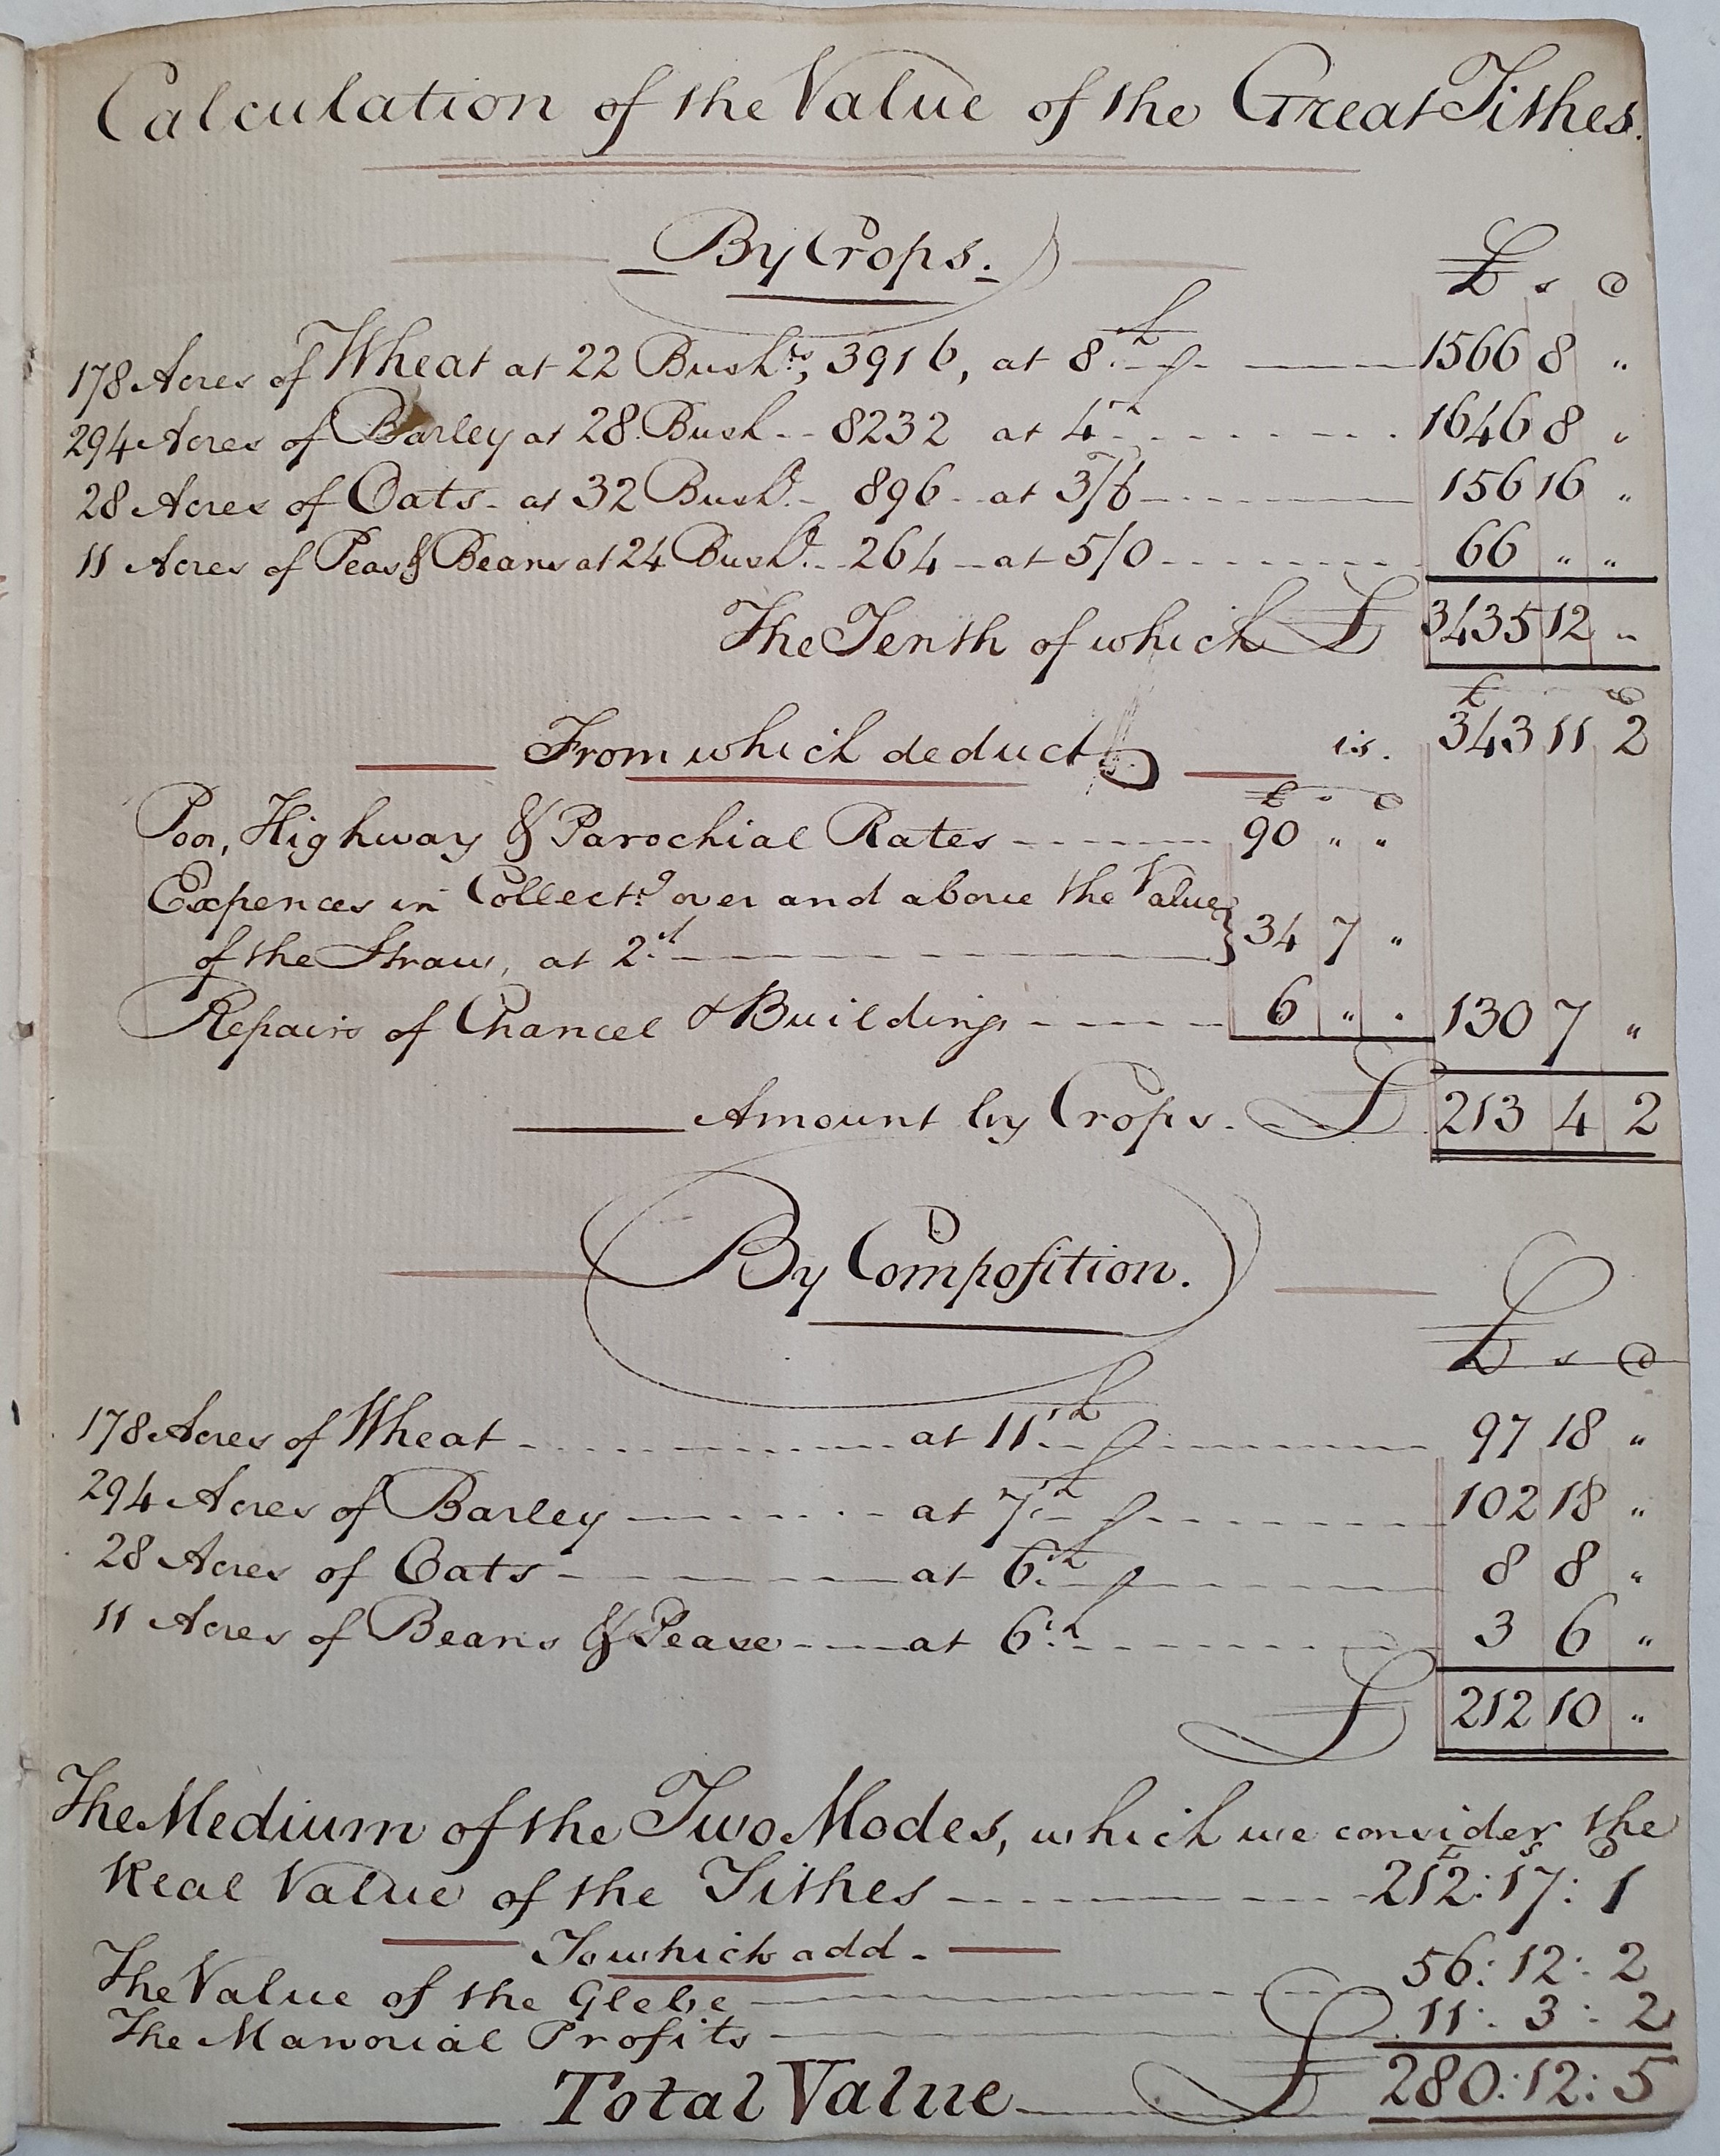 Calculation of the Value of the Great Tithes.
By Crops.
£ s d
178 Acres of Wheat at 22 Bushls, 3916, at 8sh 1566 8 "
294 Acres of Barley at 28 Bush 8232 at 4sh 1646 8 "
28 Acres of Oats at 32 Bushl. 896 at 3/6 156 16 "
11 Acres of Peas & Beans at 24 Bushl. 264 at 5/0 66 " "
The Tenth of which £ 3435 12 "
£ d
From which deduct is. 343 11 2
£ s d
Poor, Highway & Parochial Rates 90 " "
Expences in Collectg. over and above the Value
of the Straw, at 2s } 34 7 "
Repairs of Chancel & Buildings 6 " " 130 7 "
Amount by Crops. £ 213 4 2
By Compoſition.
£ s d
178 Acres of Wheat at 11sh 97 18 "
294 Acres of Barley at 7sh 102 18 "
28 Acres of Oats at 6sh 8 8 "
11 Acres of Beans & Pease at 6sh 3 6 "
£ 212 10 "
The Medium of the Two Modes, which we consider the
£ s d
Real Value of the Tithes 212: 17: 1
To which add.
The Value of the Glebe 56: 12: 2
The Manorial Profits 11: 3: 2
Total Value £ 280: 12: 5